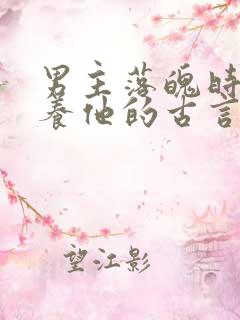 男主落魄时
养他的古言
望江影